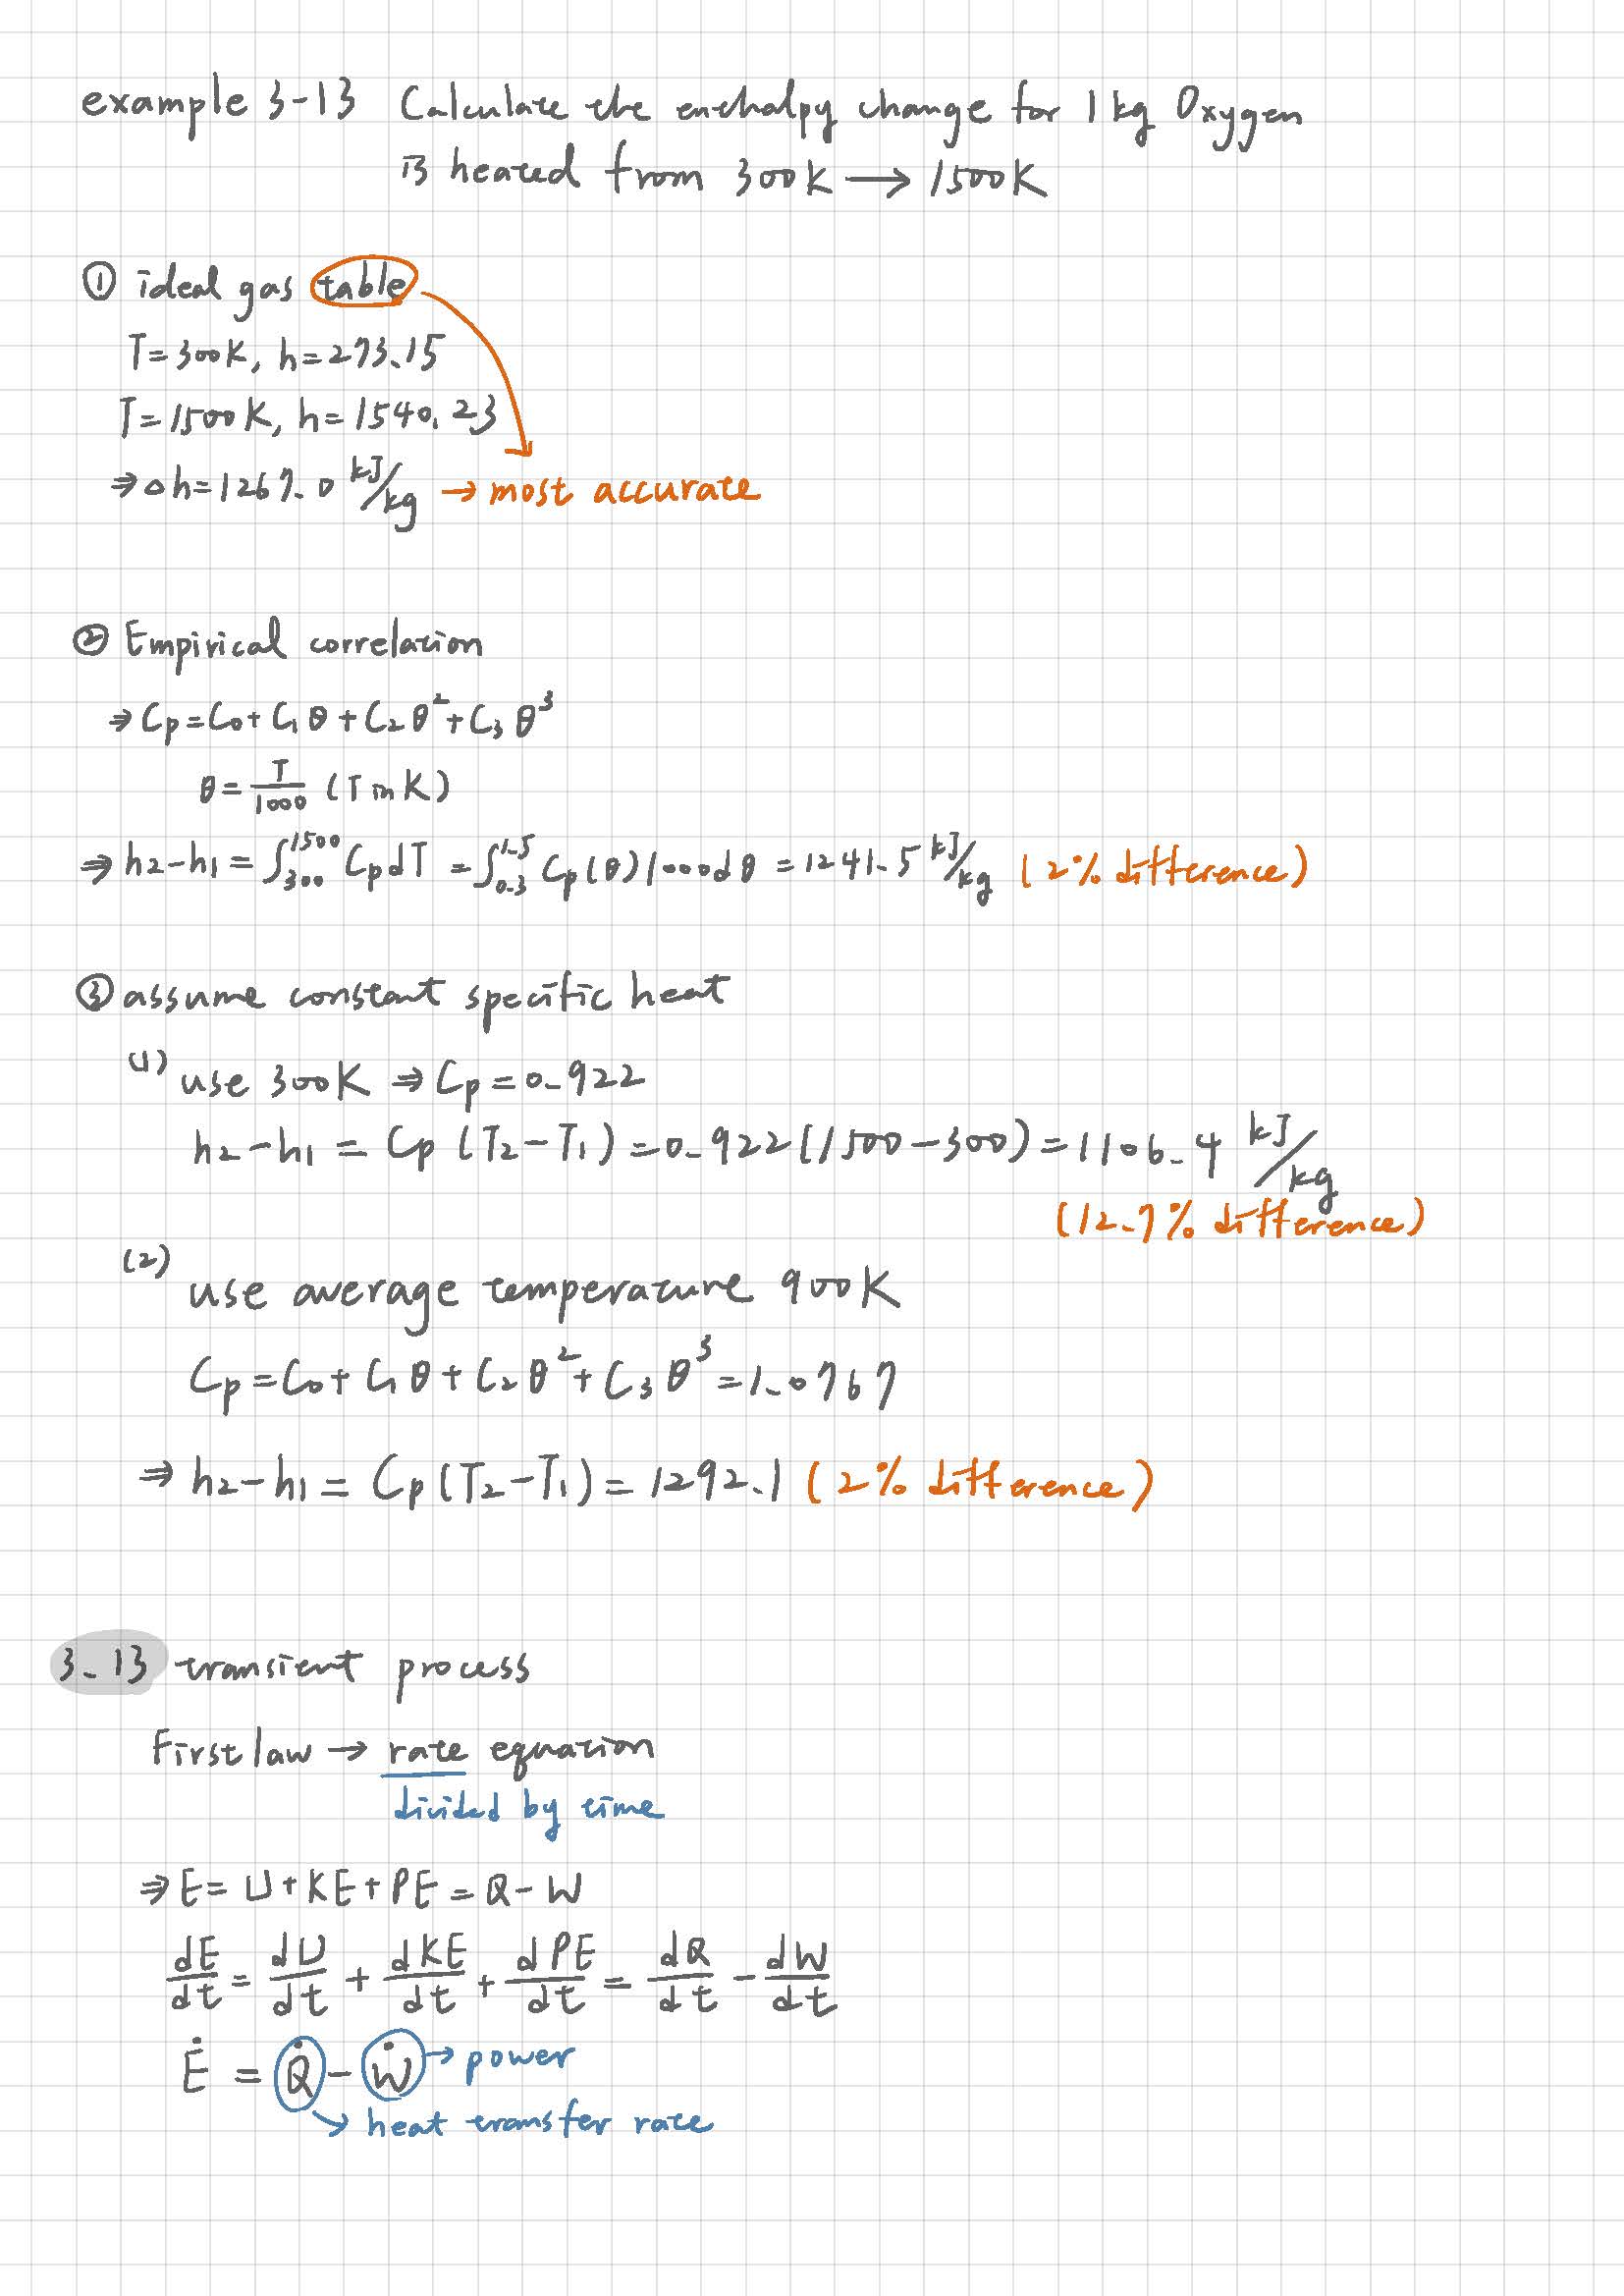 example 3-13 Calculate the enthalpy change for 1kg Oxygen
is heated from 300K → 1500K
① ideal gas table
T=300K, h=273.15
T=1500K, h=1540.23
⇒ △h=1267.0 kJ/kg → most accurate
② Empirical correlation
⇒ Cp=C₀+C₁θ+C₂θ²+C₃θ³
θ=T/1000 (T in K)
⇒ h₂-h₁=∫₃₀₀¹⁵⁰⁰ CpdT=∫₀.₃¹·⁵ Cp(θ)1000dθ=1241.5 kJ/kg (2% difference)
③ assume constant specific heat
(1) use 300K ⇒ Cp=0.922
h₂-h₁=Cp(T₂-T₁)=0.922(1500-300)=1106.4 kJ/kg
(12.7% difference)
(2) use average temperature 900K
Cp=C₀+C₁θ+C₂θ²+C₃θ³=1.0767
⇒ h₂-h₁=Cp(T₂-T₁)=1292.1 (2% difference)
3.13 transient process
First law → rate equation
divided by time
⇒ E=U+KE+PE=Q-W
dE/dt=dU/dt+dKE/dt+dPE/dt=dQ/dt-dW/dt
Ė=Q̇-Ẇ → power
→ heat transfer rate